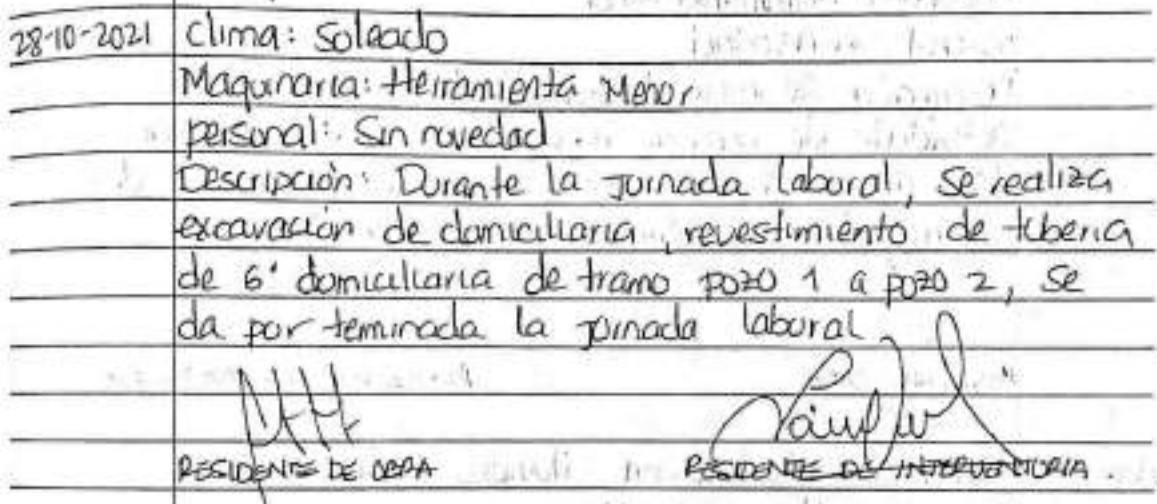 28-10-2021 Clima: Soleado
Maquinaria: Herramienta Menor
personal: Sin novedad
Descripción: Durante la Jornada laboral, se realiza
excavación de domiciliaria, revestimiento de tuberia
de 6" domiciliaria de tramo pozo 1 a pozo 2, se
da por teminada la jornada laboral
RESIDENTE DE OBRA RESIDENTE DE INTERVENTORIA